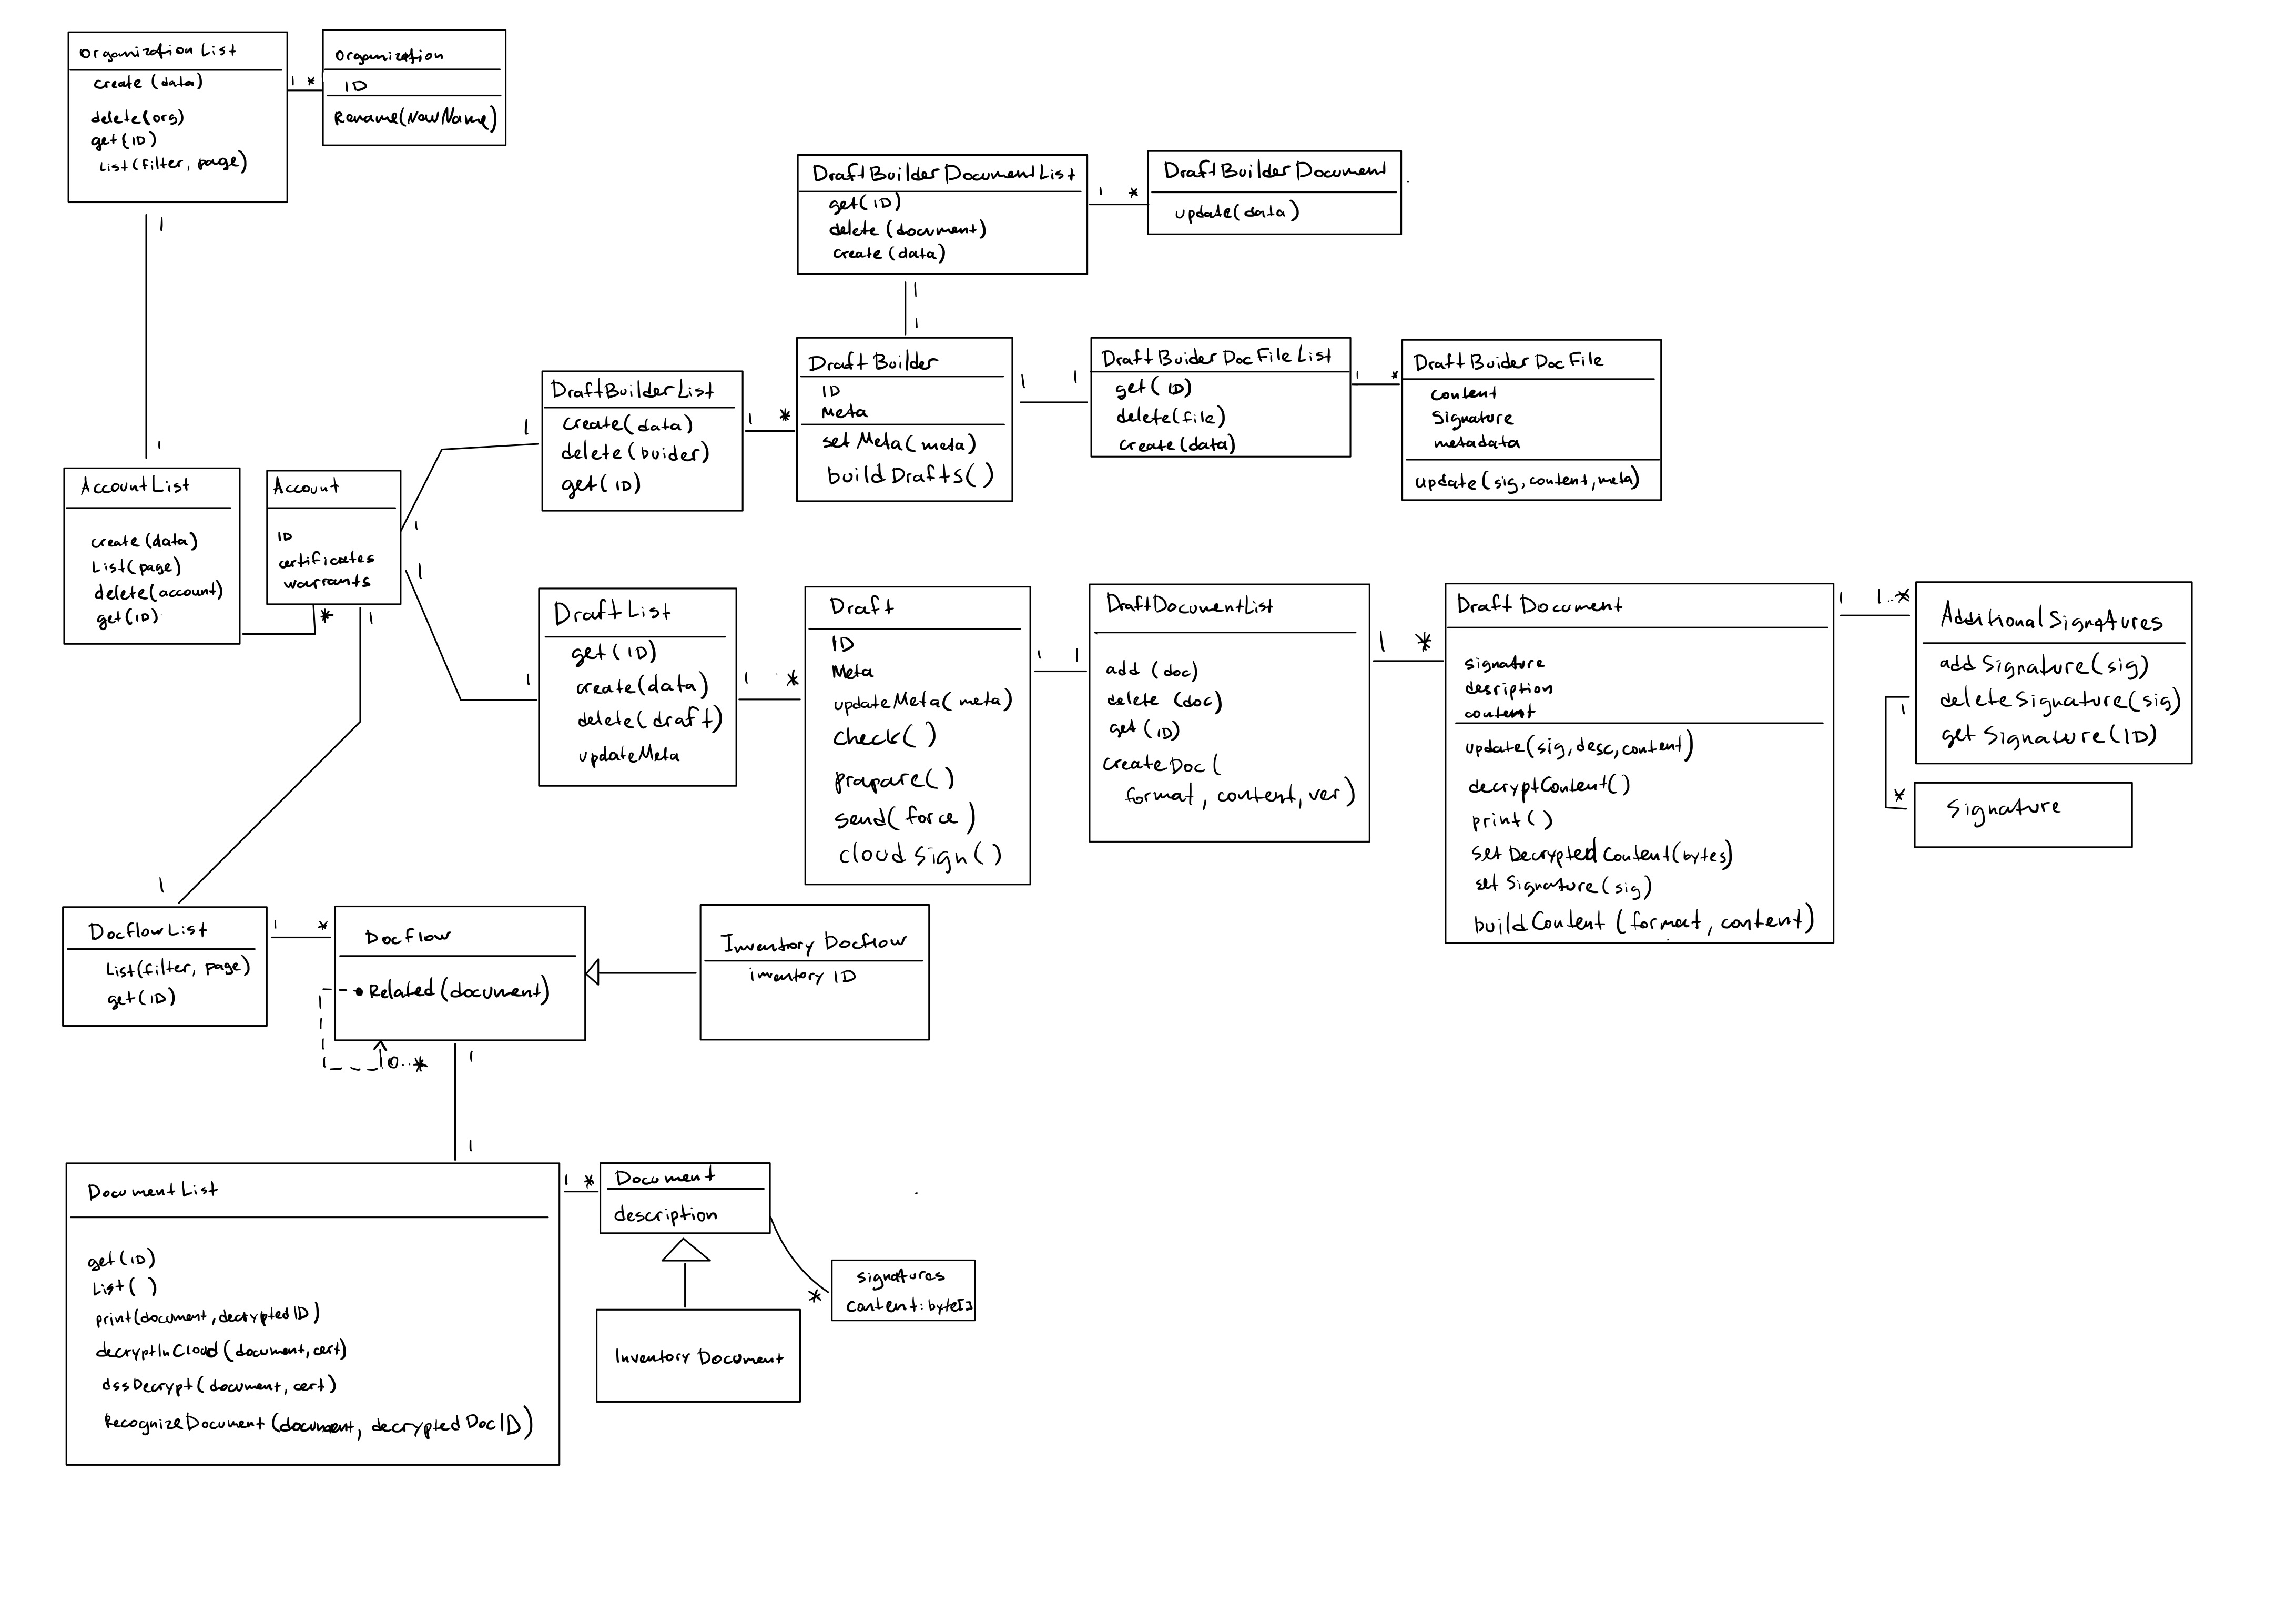 Organization List
create (data)
delete(org)
get(ID)
List(filter, page)
1 *
Organization
ID
Rename(NewName)
1
1
DraftBuilderDocumentList
get(ID)
delete(document)
create(data)
1 *
DraftBuilderDocument
update(data)
1
1
DraftBuilderList
create(data)
delete(buider)
get(ID)
1
1
1 *
DraftBuilder
ID
Meta
set Meta(meta)
buildDrafts()
1 1
Draft Buider Doc File List
get(ID)
delete(file)
create(data)
1 *
Draft Buider Doc File
content
Signature
metadata
update(sig,content,meta)
AccountList
create(data)
List(page)
delete(account)
get(ID)
*
Account
ID
certificates
warrants
1
1
1
1
Draft List
get(ID)
create(data)
delete(draft)
updateMeta
1 *
Draft
ID
Meta
updateMeta(meta)
check()
prapare()
send(force)
cloud sign()
1 1
DraftDocumentList
add (doc)
delete (doc)
get(ID)
createDoc(
format, content, ver)
1 *
Draft Document
signature
desription
content
update(sig,desc,content)
decryptContent()
print()
set Decrypted Content(bytes)
set Signature(sig)
build Content (format, content)
1 1..*
Additional Signatures
add Signature(sig)
delete Signature(sig)
get Signature(ID)
1
*
Signature
DocflowList
List(filter, page)
get(ID)
1 *
Docflow
Related(document)
0..*
Inventory Docflow
inventory ID
1
1
Document List
get(ID)
List( )
print(document,decryptedID)
decryptInCloud(document,cert)
dssDecrypt(document, cert)
RecognizeDocument(document, decryptedDocID)
1 *
Document
description
*
signatures
content: byte[]
Inventory Document